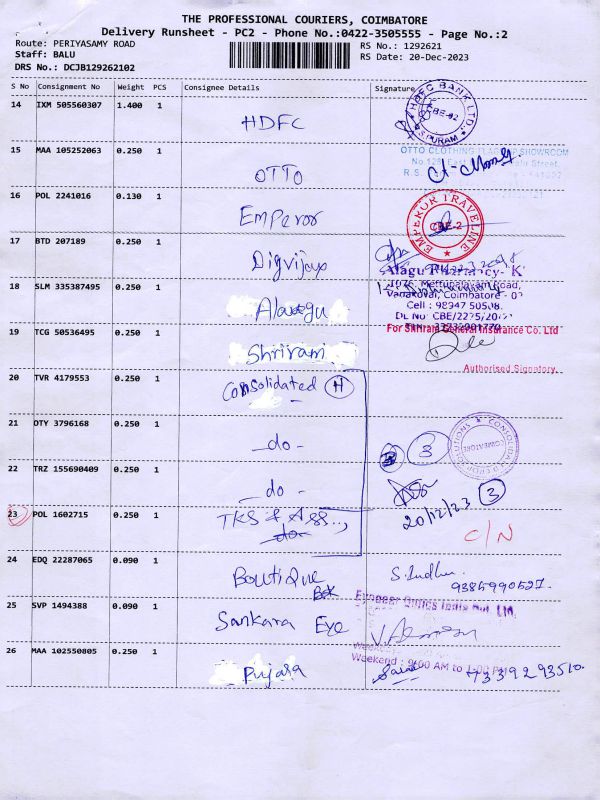 THE PROFESSIONAL COURIERS, COIMBATORE
Delivery Runsheet - PC2 - Phone No.:0422-3505555 - Page No.:2
Route: PERIYASAMY ROAD
Staff: BALU
DRS No.: DCJB129262102
RS No.: 1292621
RS Date: 20-Dec-2023
S No Consignment No Weight PCS Consignee Details Signature
14 IXM 505560307 1.400 1 HDFC
HDFC BANK LTD
CBE-02
R.S.PURAM
15 MAA 105252063 0.250 1 OTTO
OTTO CLOTHING FLAGSHIP SHOWROOM
16 POL 2241016 0.130 1 Emperor
EMPEROR TRAVELINE
CBE-2
17 BTD 207189 0.250 1 Digvijaya
Alagu Pharmacy- K
1076, Mettupalayam Road,
Vadakovai, Coimbatore -
18 SLM 335387495 0.250 1 Alagu
Cell : 98947 50508
DL No CBE/2275/20
19 TCG 50536495 0.250 1 Shriram
For Shriram General Insurance Co. Ltd
Authorised Signatory
20 TVR 4179553 0.250 1 Consolidated H
21 DTY 3796168 0.250 1 -do-
3
22 TRZ 155690409 0.250 1 -do-
20/12/23 3
23 POL 1602715 0.250 1 TKS & Ass..,
do
C/N
24 EDQ 22287065 0.090 1 Boutique
S. Indhu
9385990527
25 SVP 1494388 0.090 1 Sankara Eye
Bok
26 MAA 102550805 0.250 1 Pujara
Weekend : 9:00 AM to 1:00 PM
7339293510